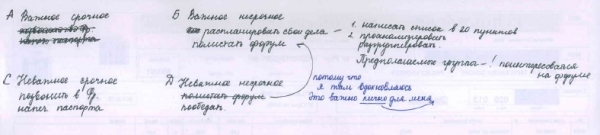 А Важное срочное
позвонить в Ф.
напеч. паспорта
Б Важное несрочное
распланировать свои дела —
полистать форум
1. написать список в 20 пунктов
2. проанализировать
разгруппировать.
Предполагаемые группы —! поинтересоваться
на форуме
С Неважное срочное
позвонить в Ф.
напеч. паспорта
Д Неважное несрочное
полистать форум
пообедать.
потому что
я там вдохновляюсь
это важно лично для меня